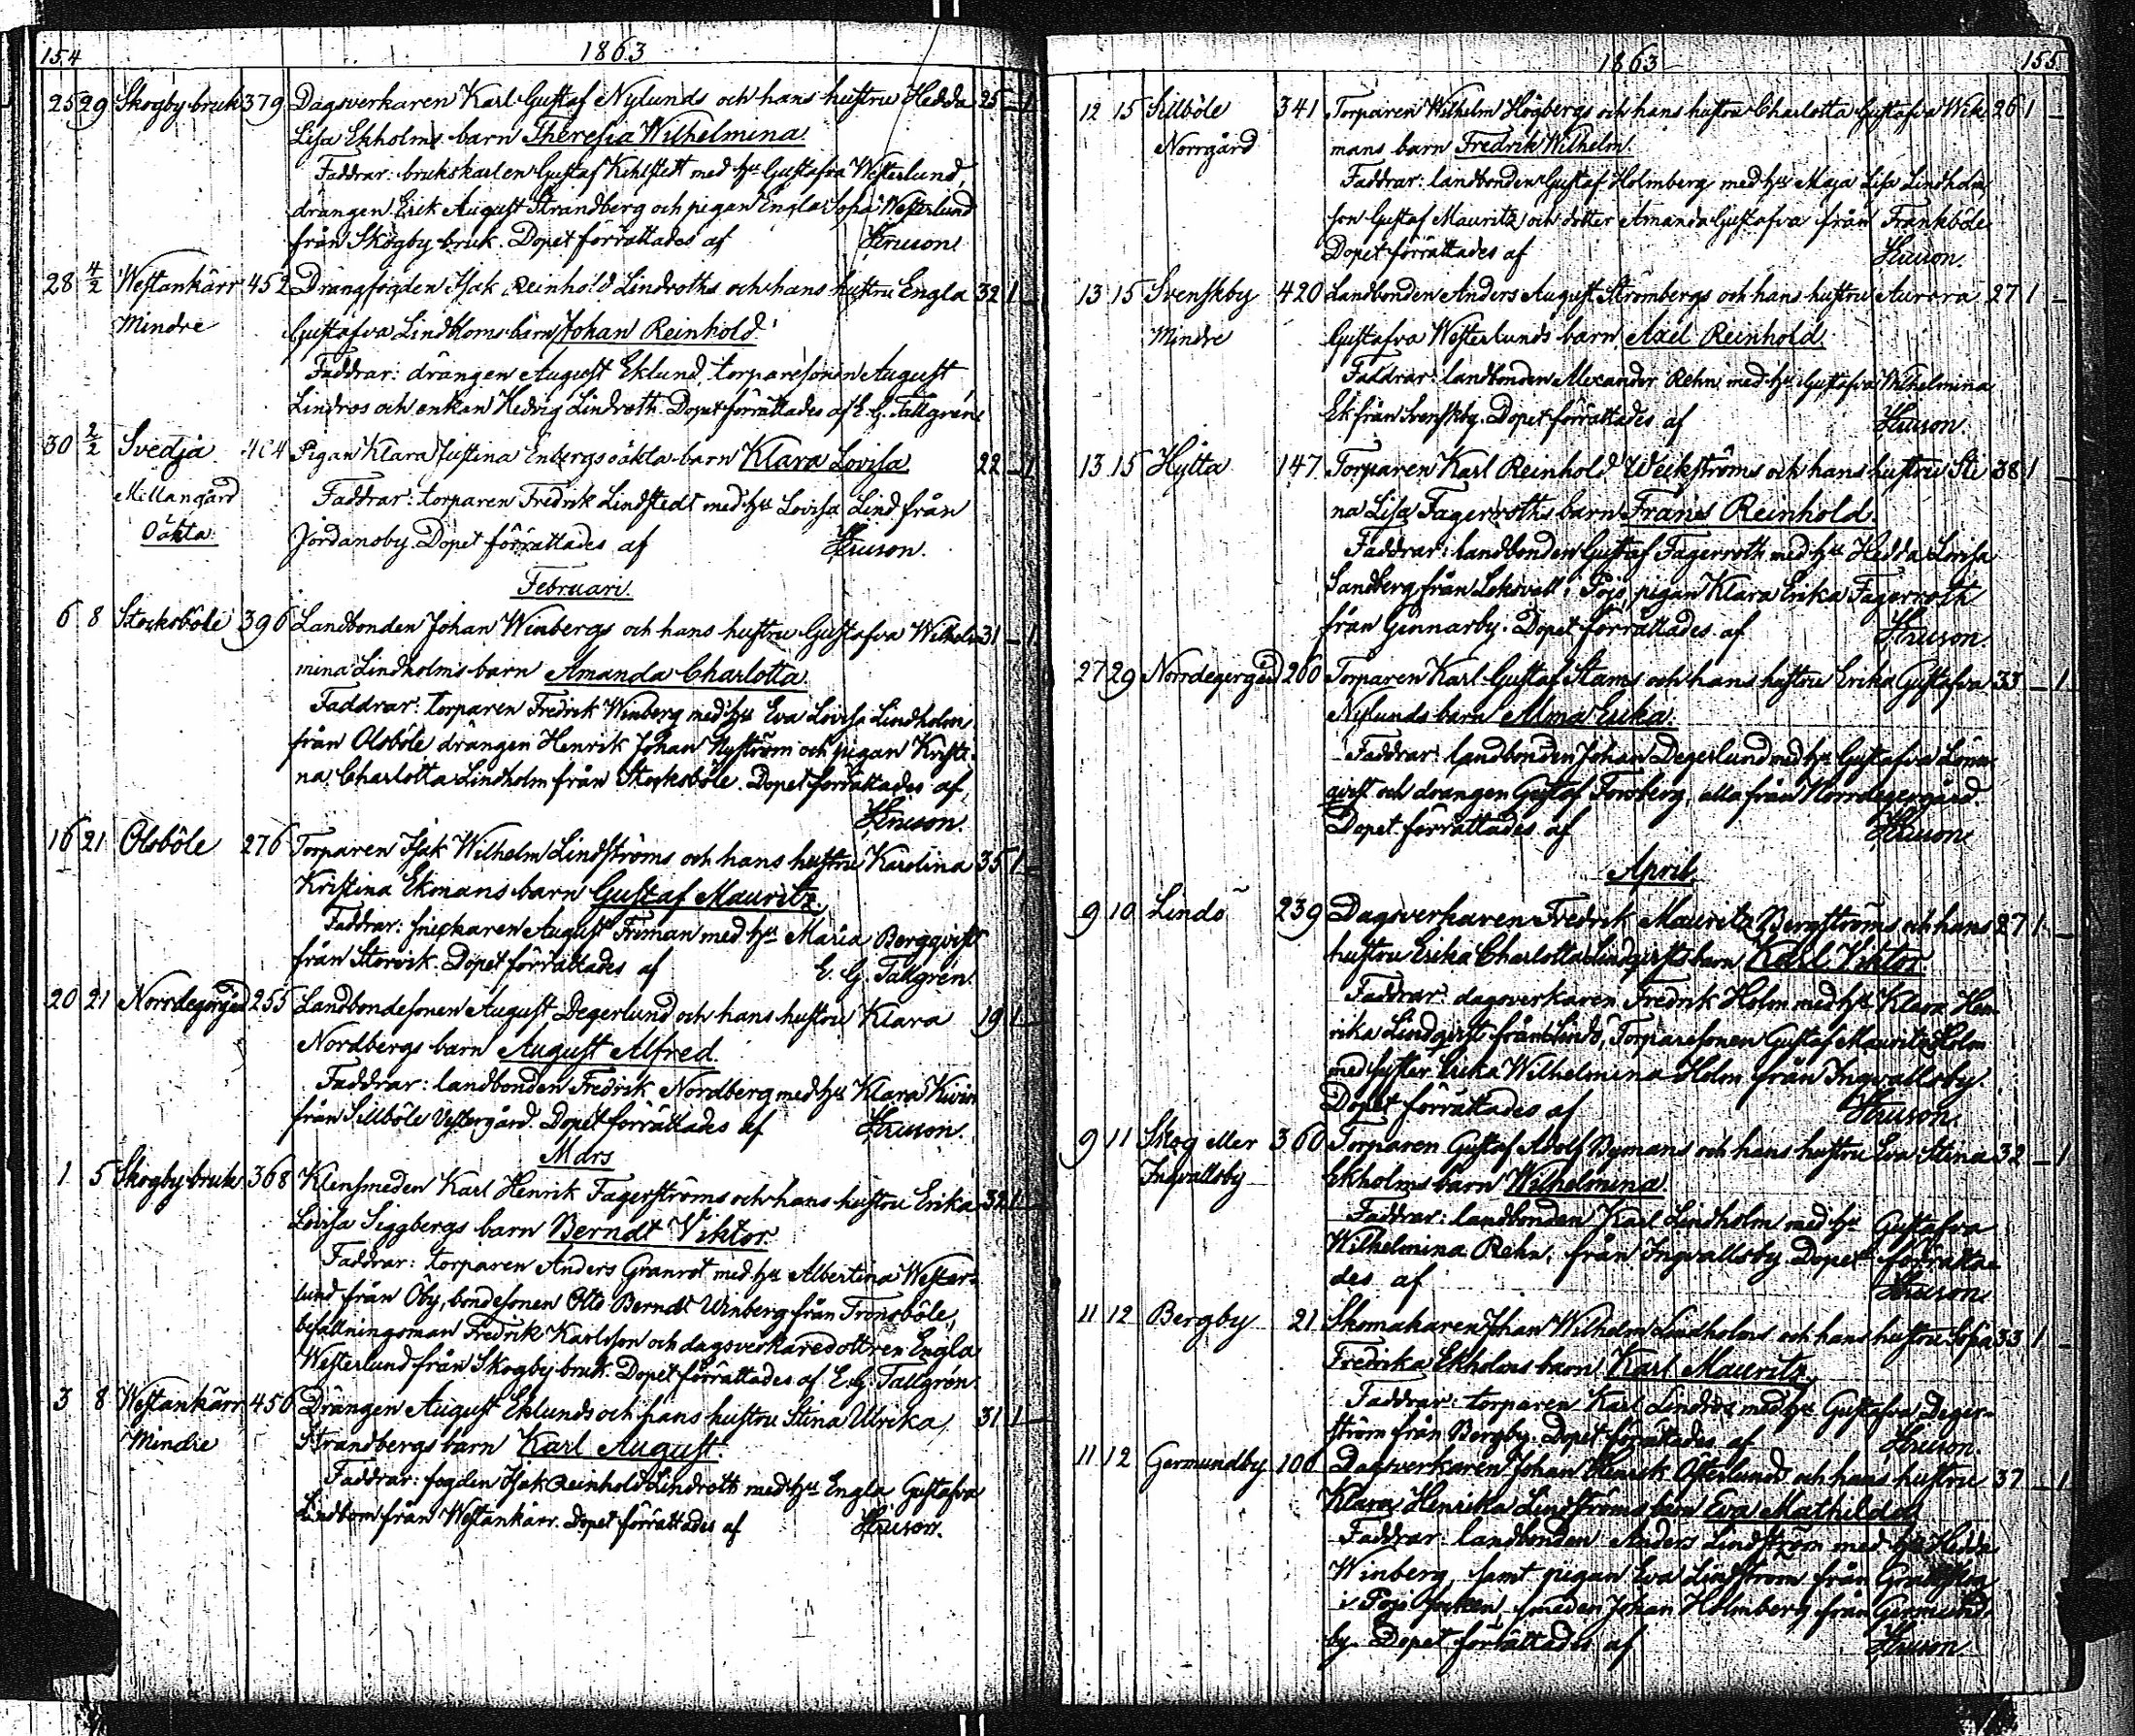 154 1863
25 29 Skogby bruk 379 Dagsverkaren Karl Gustaf Nylunds och hans hustru Hedda 25 – 1
Lisa Ekholms barn Theresia Wilhelmina
Faddrar: brukskarlen Gustaf Kihlstedt med hu Gustafva Westerlund,
drängen Erik August Strandberg och pigan Engla Sofia Westerlund
från Skogby bruk. Dopet förrättades af
28 4/2 Westankärr 452 Drängfogden Isak Reinhold Lindroths och hans hustru Engla 32 1 –
Mindre Gustafva Lindbloms barn Johan Reinhold.
Faddrar: drängen August Eklund, torparesonen August
Lindros och enkan Hedvig Lindroth. Dopet förrättades af E. G. Tallgren.
30 2/2 Svedja 404 Pigan Klara Justina Enbergs oäkta barn Klara Lovisa 22 – 1
Mellangård Faddrar: torparen Fredrik Lindstedt med hu Lovisa Lind från
Oäkta Jordansby. Dopet förrättades af
Februari.
6 8 Stocksböle 396 Landbonden Johan Winbergs och hans hustru Gustafva Wilhel- 31 – 1
mina Lindholms barn Amanda Charlotta.
Faddrar: torparen Fredrik Winberg med hu Eva Lovisa Lindholm
från Olsböle drängen Henrik Johan Nyström och pigan Kristi-
na Charlotta Lindholm från Stocksböle. Dopet förrättades af
16 21 Olsböle 276 Torparen Isak Wilhelm Lindströms och hans hustru Karolina 35 1 –
Kristina Ekmans barn Gustaf Mauritz.
Faddrar: snickaren August Friman med hu Maria Bergqvist
från Storvik. Dopet förrättades af E. G. Tallgren.
20 21 Norrdegergård 255 Landbondesonen August Degerlund och hans hustru Klara 19 1 –
Nordbergs barn August Alfred.
Faddrar: landbonden Fredrik Nordberg med hu Klara
från Sillböle Vestergård. Dopet förrättades af
Mars
1 5 Skogby bruk 368 Klensmeden Karl Henrik Fagerströms och hans hustru Erika 32 1 –
Lovisa Siggbergs barn Berndt Viktor.
Faddrar: torparen Anders Granrot med hu Albertina Wester-
lund från Öby, bondesonen Otto Berndt Winberg från Tronsböle,
befallningsman Fredrik Karlsson och dagsverkaredottren Engla
Westerlund från Skogby bruk. Dopet förrättades af E. G. Tallgren.
3 8 Westankärr 456 Drängen August Eklunds och hans hustru Stina Ulrika 31 1 –
Mindre Strandbergs barn Karl August.
Faddrar: fogden Isak Reinhold Lindroth med hu Engla Gustafva
Lindbom från Westankärr. Dopet förrättades af
1863 155
12 15 Sillböle 341 Torparen Wilhelm Högbergs och hans hustru Charlotta Gustafva Wik- 26 1 –
Norrgård mans barn Fredrik Wilhelm.
Faddrar: landbonden Gustaf Holmberg med hu Maja Lisa Lindholm,
son Gustaf Mauritz och dotter Amanda Gustafva från Frankböle
Dopet förrättades af
13 15 Svenskby 420 Landbonden Anders August Strömbergs och hans hustru Aurora 27 1 –
Mindre Gustafva Westerlunds barn Axel Reinhold.
Faddrar: landbonden Alexander Rehn med hu Gustafva Wilhelmina
Ek från Svenskby. Dopet förrättades af
13 15 Hytta 147 Torparen Karl Reinhold Weckströms och hans hustru Sti- 38 1 –
na Lisa Fagerroths barn Frans Reinhold.
Faddrar: landbonden Gustaf Fagerroth med hu Hedda Lovisa
Sandberg från Leksvall i Pojo, pigan Klara Erika Fagerroth
från Gennarby. Dopet förrättades af
27 29 Norrdegergård 260 Torparen Karl Gustaf Stams och hans hustru Erika Gustafva 33 – 1
Nylunds barn Alma Erika.
Faddrar: landbonden Johan Degerlund med hu Gustafva Lönn-
qvist och drängen Gustaf Forsberg, alla från Norrdegergård.
Dopet förrättades af
April.
9 10 Lindö 239 Dagsverkaren Fredrik Mauritz Bergströms och hans 27 1 –
hustru Erika Charlotta Lindqvists barn Karl Viktor.
Faddrar: dagsverkaren Fredrik Holm med hu Klara Hen-
rika Lindqvist från Lindö, Torparesonen Gustaf Mauritz Holm
med syster Erika Wilhelmina Holm från Ingvallsby.
Dopet förrättades af
9 11 Skog eller 360 Torparen Gustaf Adolf Bymans och hans hustru Eva Stina 32 – 1
Ingvallsby Ekholms barn Wilhelmina
Faddrar: landbonden Karl Lindholm med hu Gustafva
Wilhelmina Rehn, från Ingvallsby. Dopet förrätta-
des af
11 12 Bergby 21 Skomakaren Johan Wilhelm Lindholms och hans hustru Sofia 33 1 –
Fredrika Ekholms barn Karl Mauritz.
Faddrar: torparen Karl Lindros med hu Gustafva Deger-
ström från Bergby. Dopet förrättades af
11 12 Germundby 100 Dagsverkaren Johan Henrik Österlunds och hans hustru 37 – 1
Klara Henrika Lindströms barn Eva Mathilda
Faddrar: landbonden Anders Lindström med hu Hedda
Winberg, samt pigan Eva Lindström från
i Pojo socken, smeden Johan Holmberg från Germund-
by. Dopet förrättades af